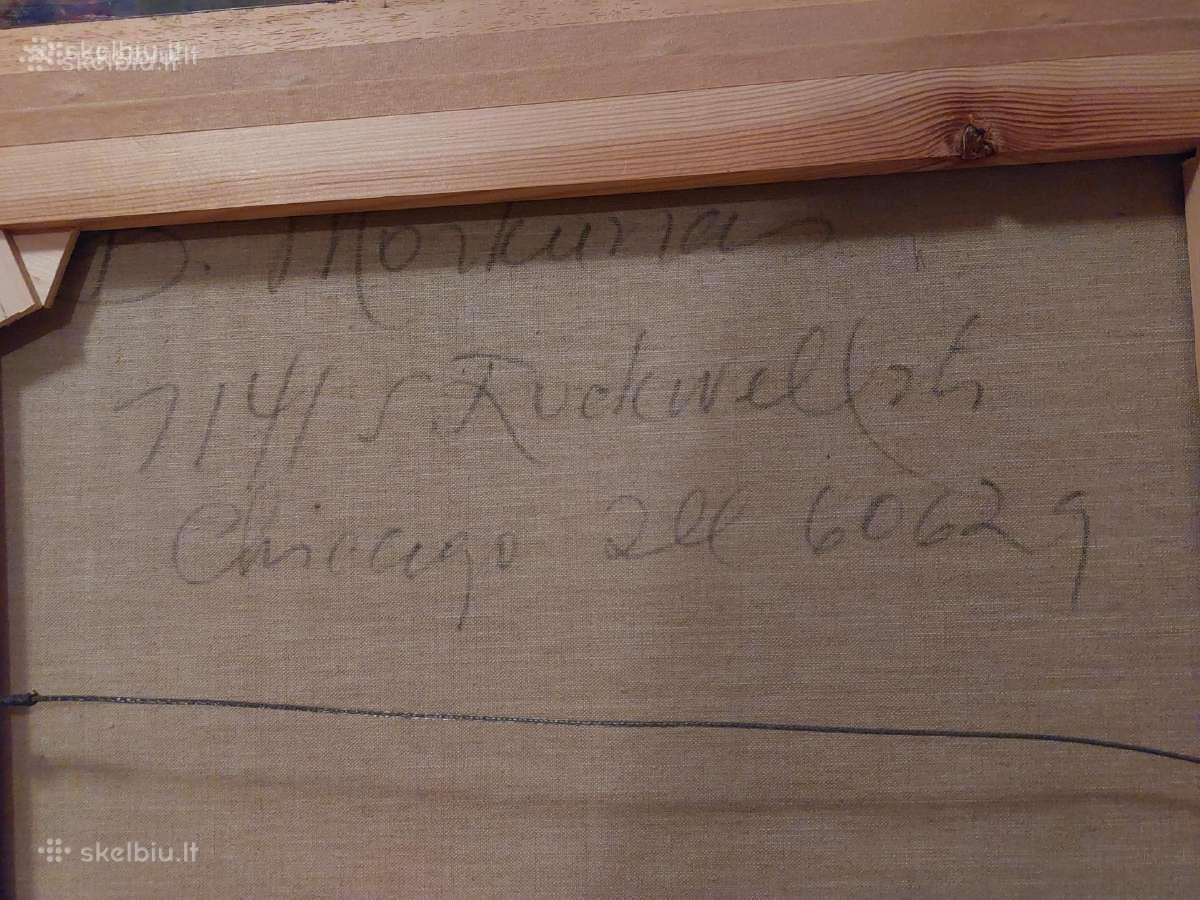 skelbiu.lt
skelbiu.lt
B. Morkūnas
7141 S. Rockwell st,
Chicago Ill 60629
skelbiu.lt